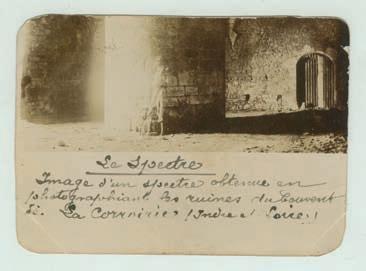 Le Spectre
Image d'un spectre obtenue en
photographiant les ruines du Couvent
de La Corroirie (Indre et Loire.)